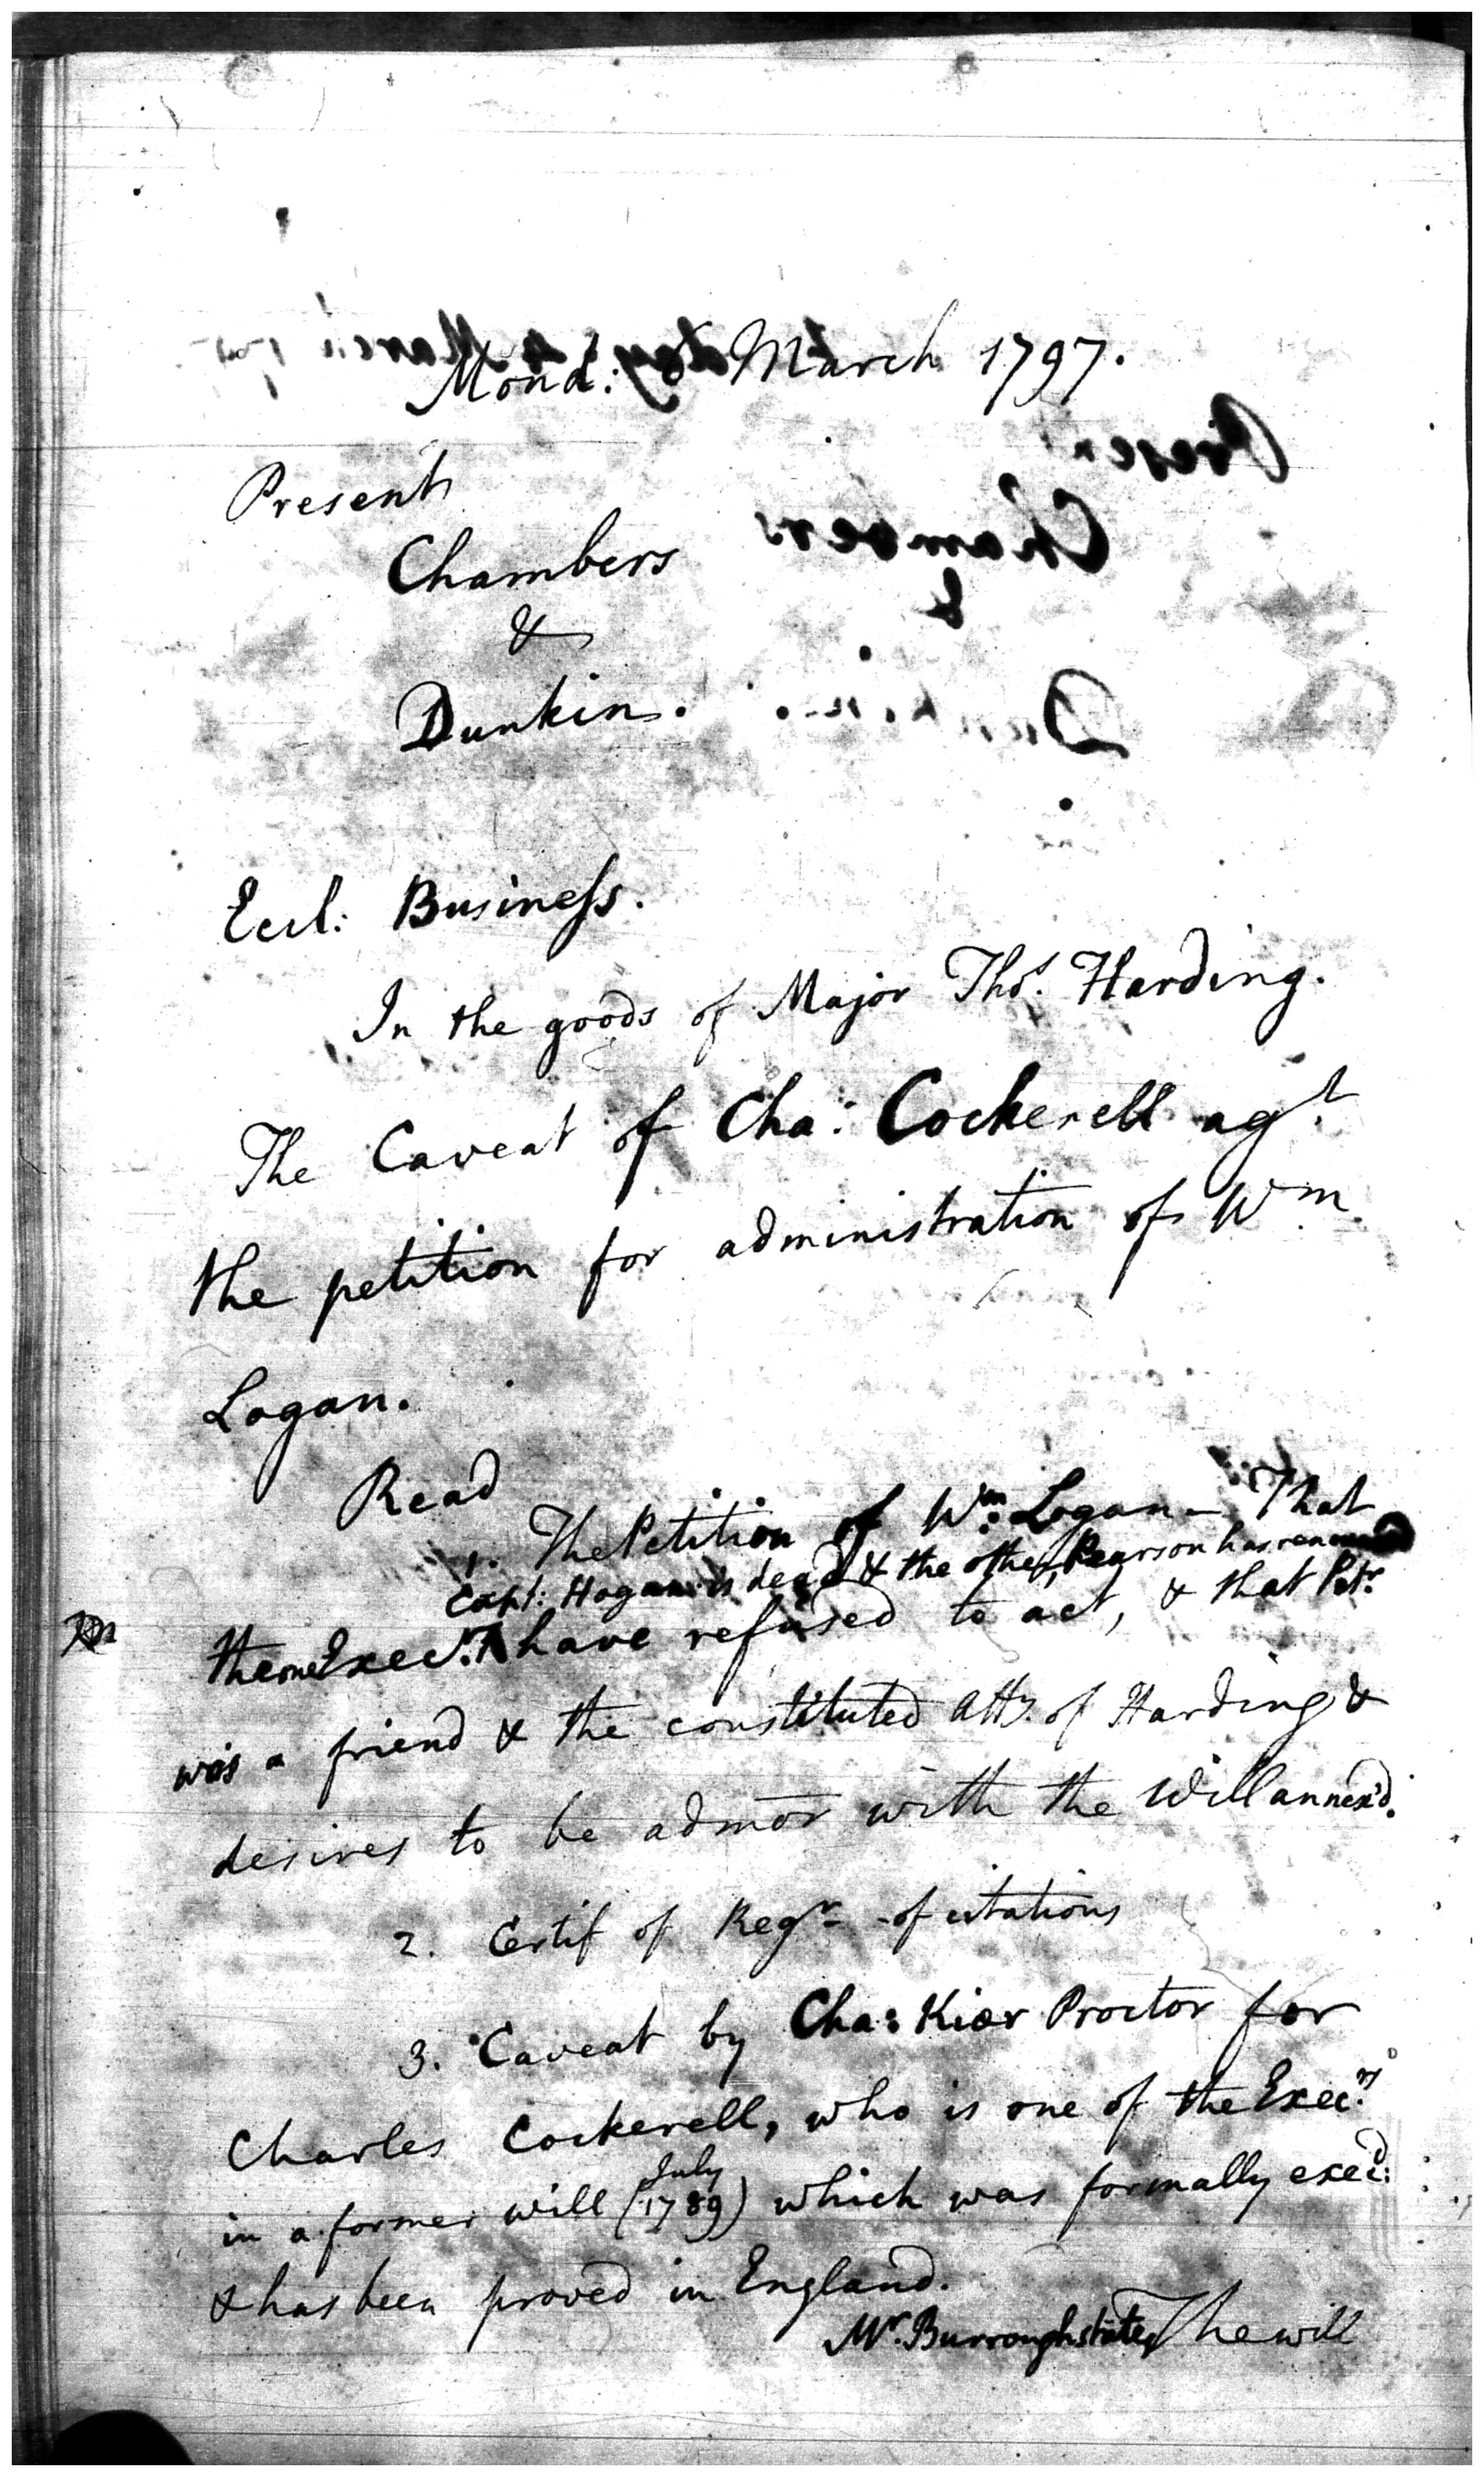 Mond: 6 March 1797.
Present
Chambers
&
Dunkin.
Eccl: Business.
In the goods of Major Thos. Harding.
The Caveat of Cha: Cockerell agt.
the petition for administration of Wm.
Logan.
Read
1. The Petition of Wm. Logan - That
Capt: Hogan is dead & the other, Pearson has
the one Execr. have refused to act, & that Petr.
was a friend & the constituted Atty. of Harding &
desires to be admor with the Will annex'd.
2. Certif of Regr. of citations
3. Caveat by Cha: Kier Proctor for
Charles Cockerell, who is one of the Execrs.
in a former will (July 1789) which was formally execd:
& has been proved in England.
Mr. Burrough states The will